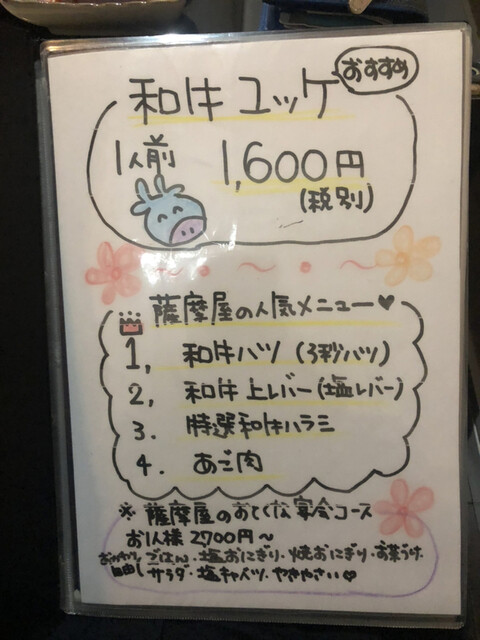 おすすめ
和牛ユッケ
1人前 1,600円
(税別)
薩摩屋の人気メニュー♥
1, 和牛ハツ (3秒ハツ)
2, 和牛上レバー(塩レバー)
3. 特選和牛ハラミ
4. あご肉
※ 薩摩屋のおとくな宴会コース
お1人様 2700円〜
おかわり自由！ ごはん・塩おにぎり・焼おにぎり・お茶づけ
サラダ・塩キャベツ・やきやさい♡